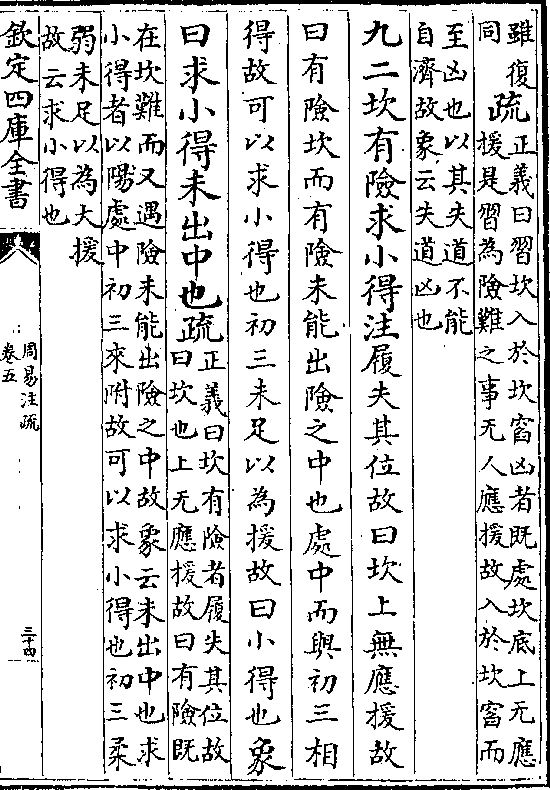 雖復
同
疏
正義曰習坎入於坎窞凶者既處坎底上无應
援是習為險難之事无人應援故入於坎窞而
至凶也以其失道不能
自濟故象云失道凶也
九二坎有險求小得注履失其位故曰坎上無應援故
曰有險坎而有險未能出險之中也處中而與初三相
得故可以求小得也初三未足以為援故曰小得也象
曰求小得未出中也疏
正義曰坎有險者履失其位故
曰坎也上无應援故曰有險既
在坎難而又遇險未能出險之中故象云未出中也求
小得者以陽處中初三來附故可以求小得也初三柔
弱未足以為大援
故云求小得也
欽定四庫全書
周易注疏
卷五
三十四